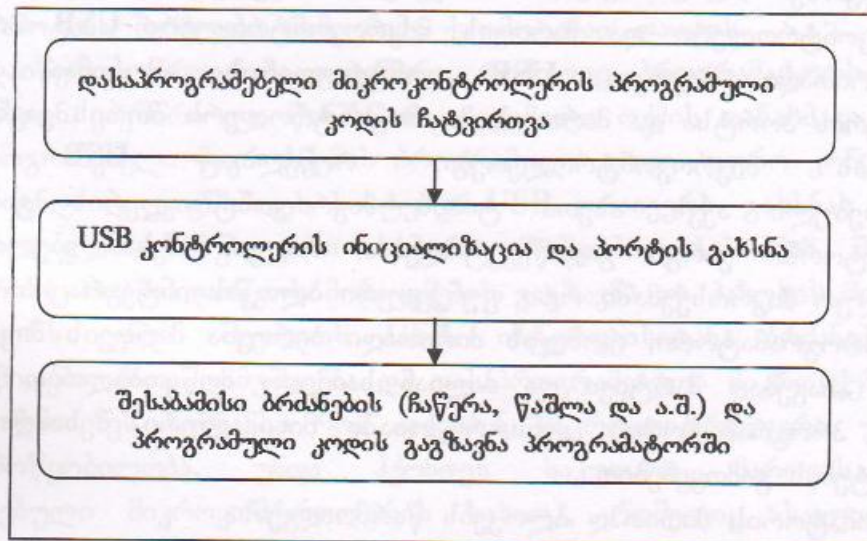 დასაპროგრამებელი მიკროკონტროლერის პროგრამული
კოდის ჩატვირთვა
USB კონტროლერის ინიციალიზაცია და პორტის გახსნა
შესაბამისი ბრძანების (ჩაწერა, წაშლა და ა.შ.) და
პროგრამული კოდის გაგზავნა პროგრამატორში